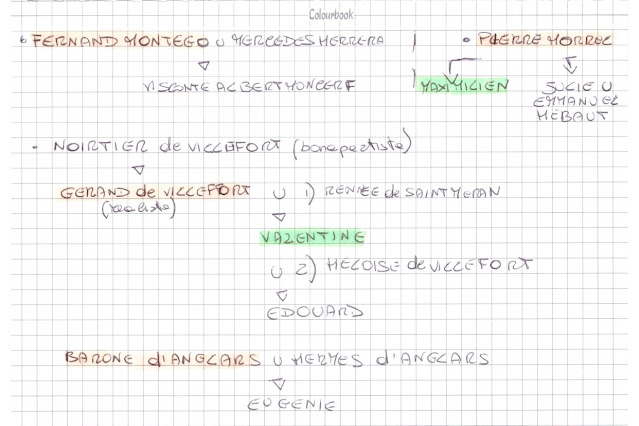 Colourbook
• FERNAND MONTEGO U MERCEDES HERRERA
• PIERRE MORREL
VISCONTE ALBERT MONCERF
MAXIMILIEN
JULIE U
EMMANUEL
HEBAUT
- NOIRTIER de VILLEFORT (bonapartista)
GERAND de VILLEFORT U 1) RENEE de SAINT MERAN
(realista)
VALENTINE
U 2) HELOISE de VILLEFORT
EDOUARD
BARONE d'ANGLARS U HERMES d'ANGLARS
EUGENIE